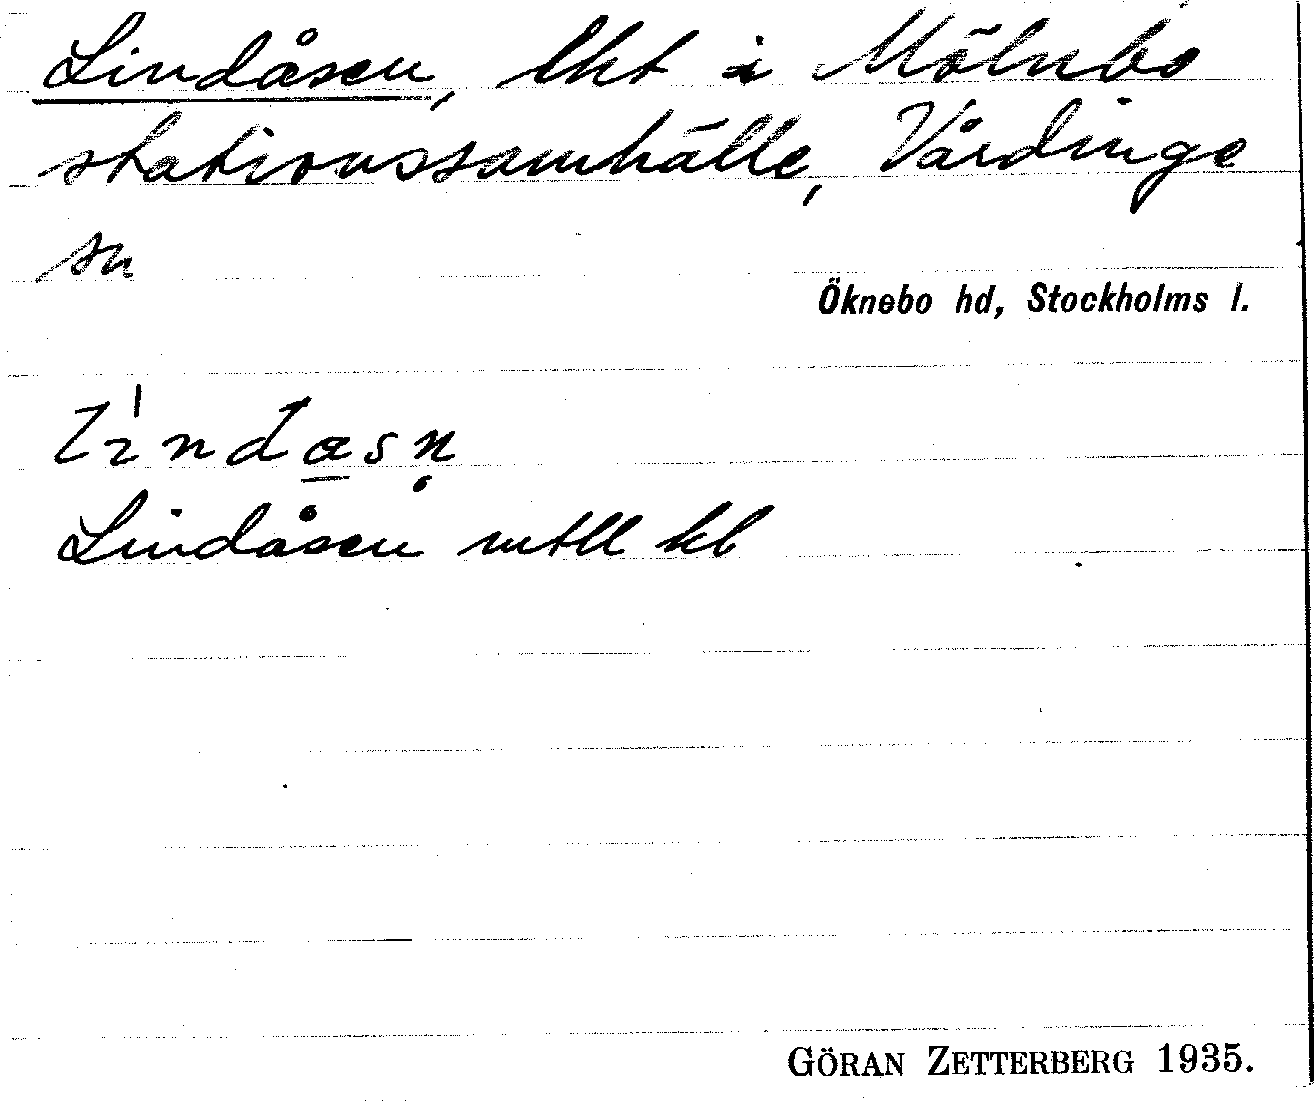 Lindåsen, lht i Mölnbo
stationssamhälle, Vårdinge
sn
Öknebo hd, Stockholms l.
Lindåsen mtll kb
GÖRAN ZETTERBERG 1935.